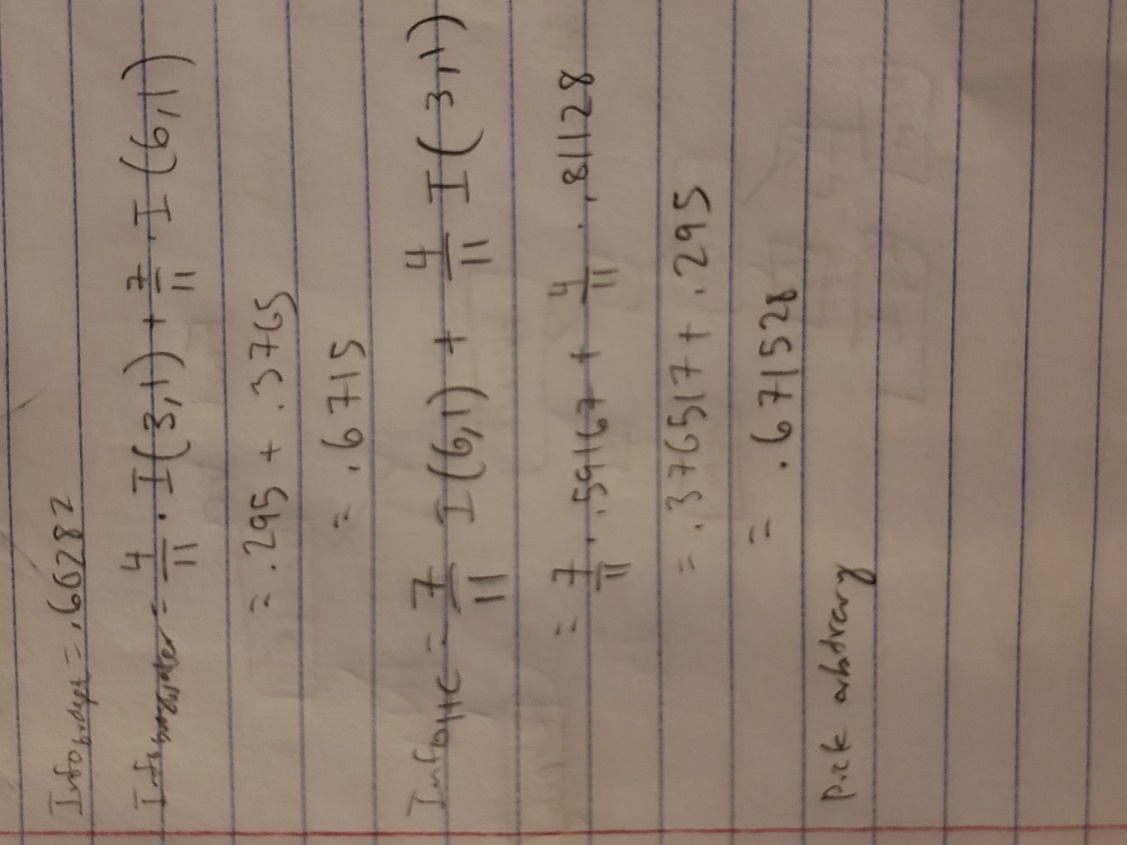 Info budget = .66282
Info = 4/11 · I(3,1) + 7/11 · I(6,1)
= .295 + .3765
= .6715
Info DHC = 7/11 I(6,1) + 4/11 I(3,1)
= 7/11 · .59167 + 4/11 · .81128
= .376517 + .295
= .671528
pick arbitrary